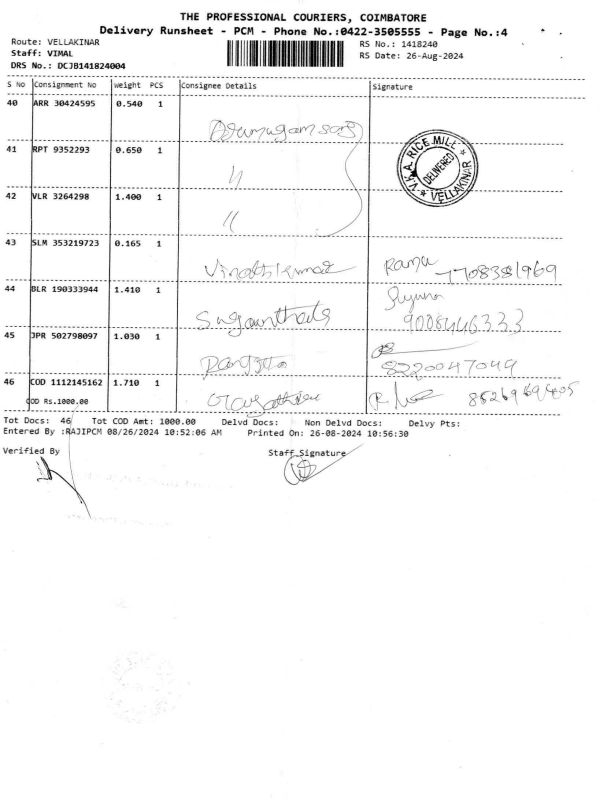 THE PROFESSIONAL COURIERS, COIMBATORE
Delivery Runsheet - PCM - Phone No.:0422-3505555 - Page No.:4
Route: VELLAKINAR
RS No.: 1418240
Staff: VIMAL
RS Date: 26-Aug-2024
DRS No.: DCJB141824004
S No Consignment No weight PCS Consignee Details Signature
40 ARR 30424595 0.540 1
41 RPT 9352293 0.650 1
V.K.A. RICE MILL * VELLAKINAR * DELIVERED
42 VLR 3264298 1.400 1
43 SLM 353219723 0.165 1
Vinoth Kumar Ramu 7708381969
44 BLR 190333944 1.410 1
9008446333
45 JPR 502798097 1.030 1
8220047049
46 COD 1112145162 1.710 1
COD Rs.1000.00
Tot Docs: 46 Tot COD Amt: 1000.00 Delvd Docs: Non Delvd Docs: Delvy Pts:
Entered By :RAJIPCM 08/26/2024 10:52:06 AM Printed On: 26-08-2024 10:56:30
Verified By Staff Signature